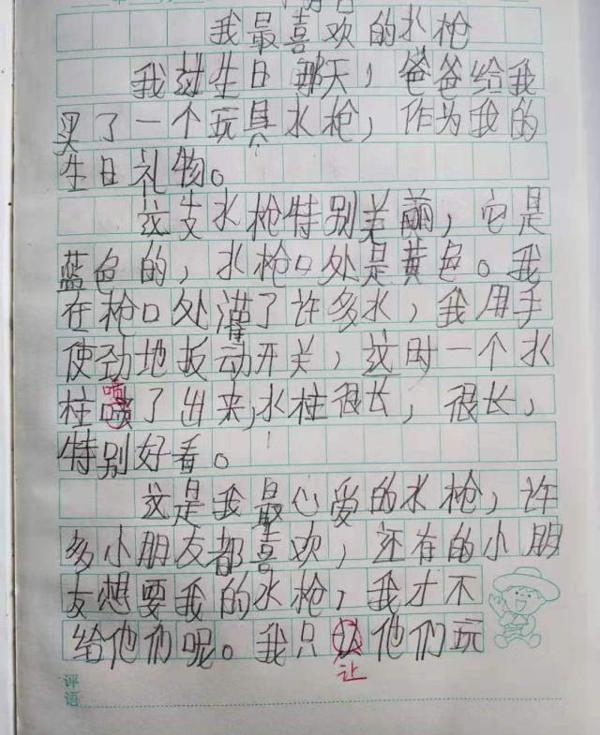 我最喜欢的水枪
我过生日那天，爸爸给我
买了一个玩具水枪，作为我的
生日礼物。
这支水枪特别美丽，它是
蓝色的，水枪口处是黄色。我
在枪口处灌了许多水，我用手
使劲地扳动开关，这时一个水
柱喷了出来，水柱很长，很长，
喷
特别好看。
这是我最心爱的水枪，许
多小朋友都喜欢，还有的小朋
友想要我的水枪，我才不
给他们呢。我只 他们玩
让
评语